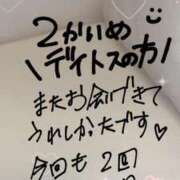 2かいめ
\デイトスの方/
またお会いできて
うれしかたです♡
今回も2回